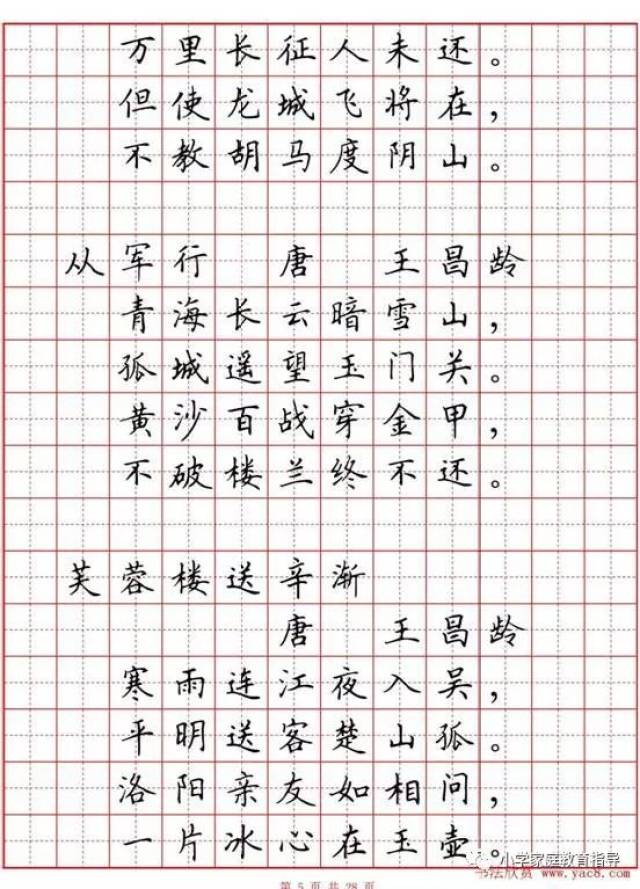 万里长征人未还。
但使龙城飞将在，
不教胡马度阴山。
从军行 唐 王昌龄
青海长云暗雪山，
孤城遥望玉门关。
黄沙百战穿金甲，
不破楼兰终不还。
芙蓉楼送辛渐
唐 王昌龄
寒雨连江夜入吴，
平明送客楚山孤。
洛阳亲友如相问，
一片冰心在玉壶。
小学家庭教育指导
书法欣赏 www.yac8.com
第 5 页 共 28 页